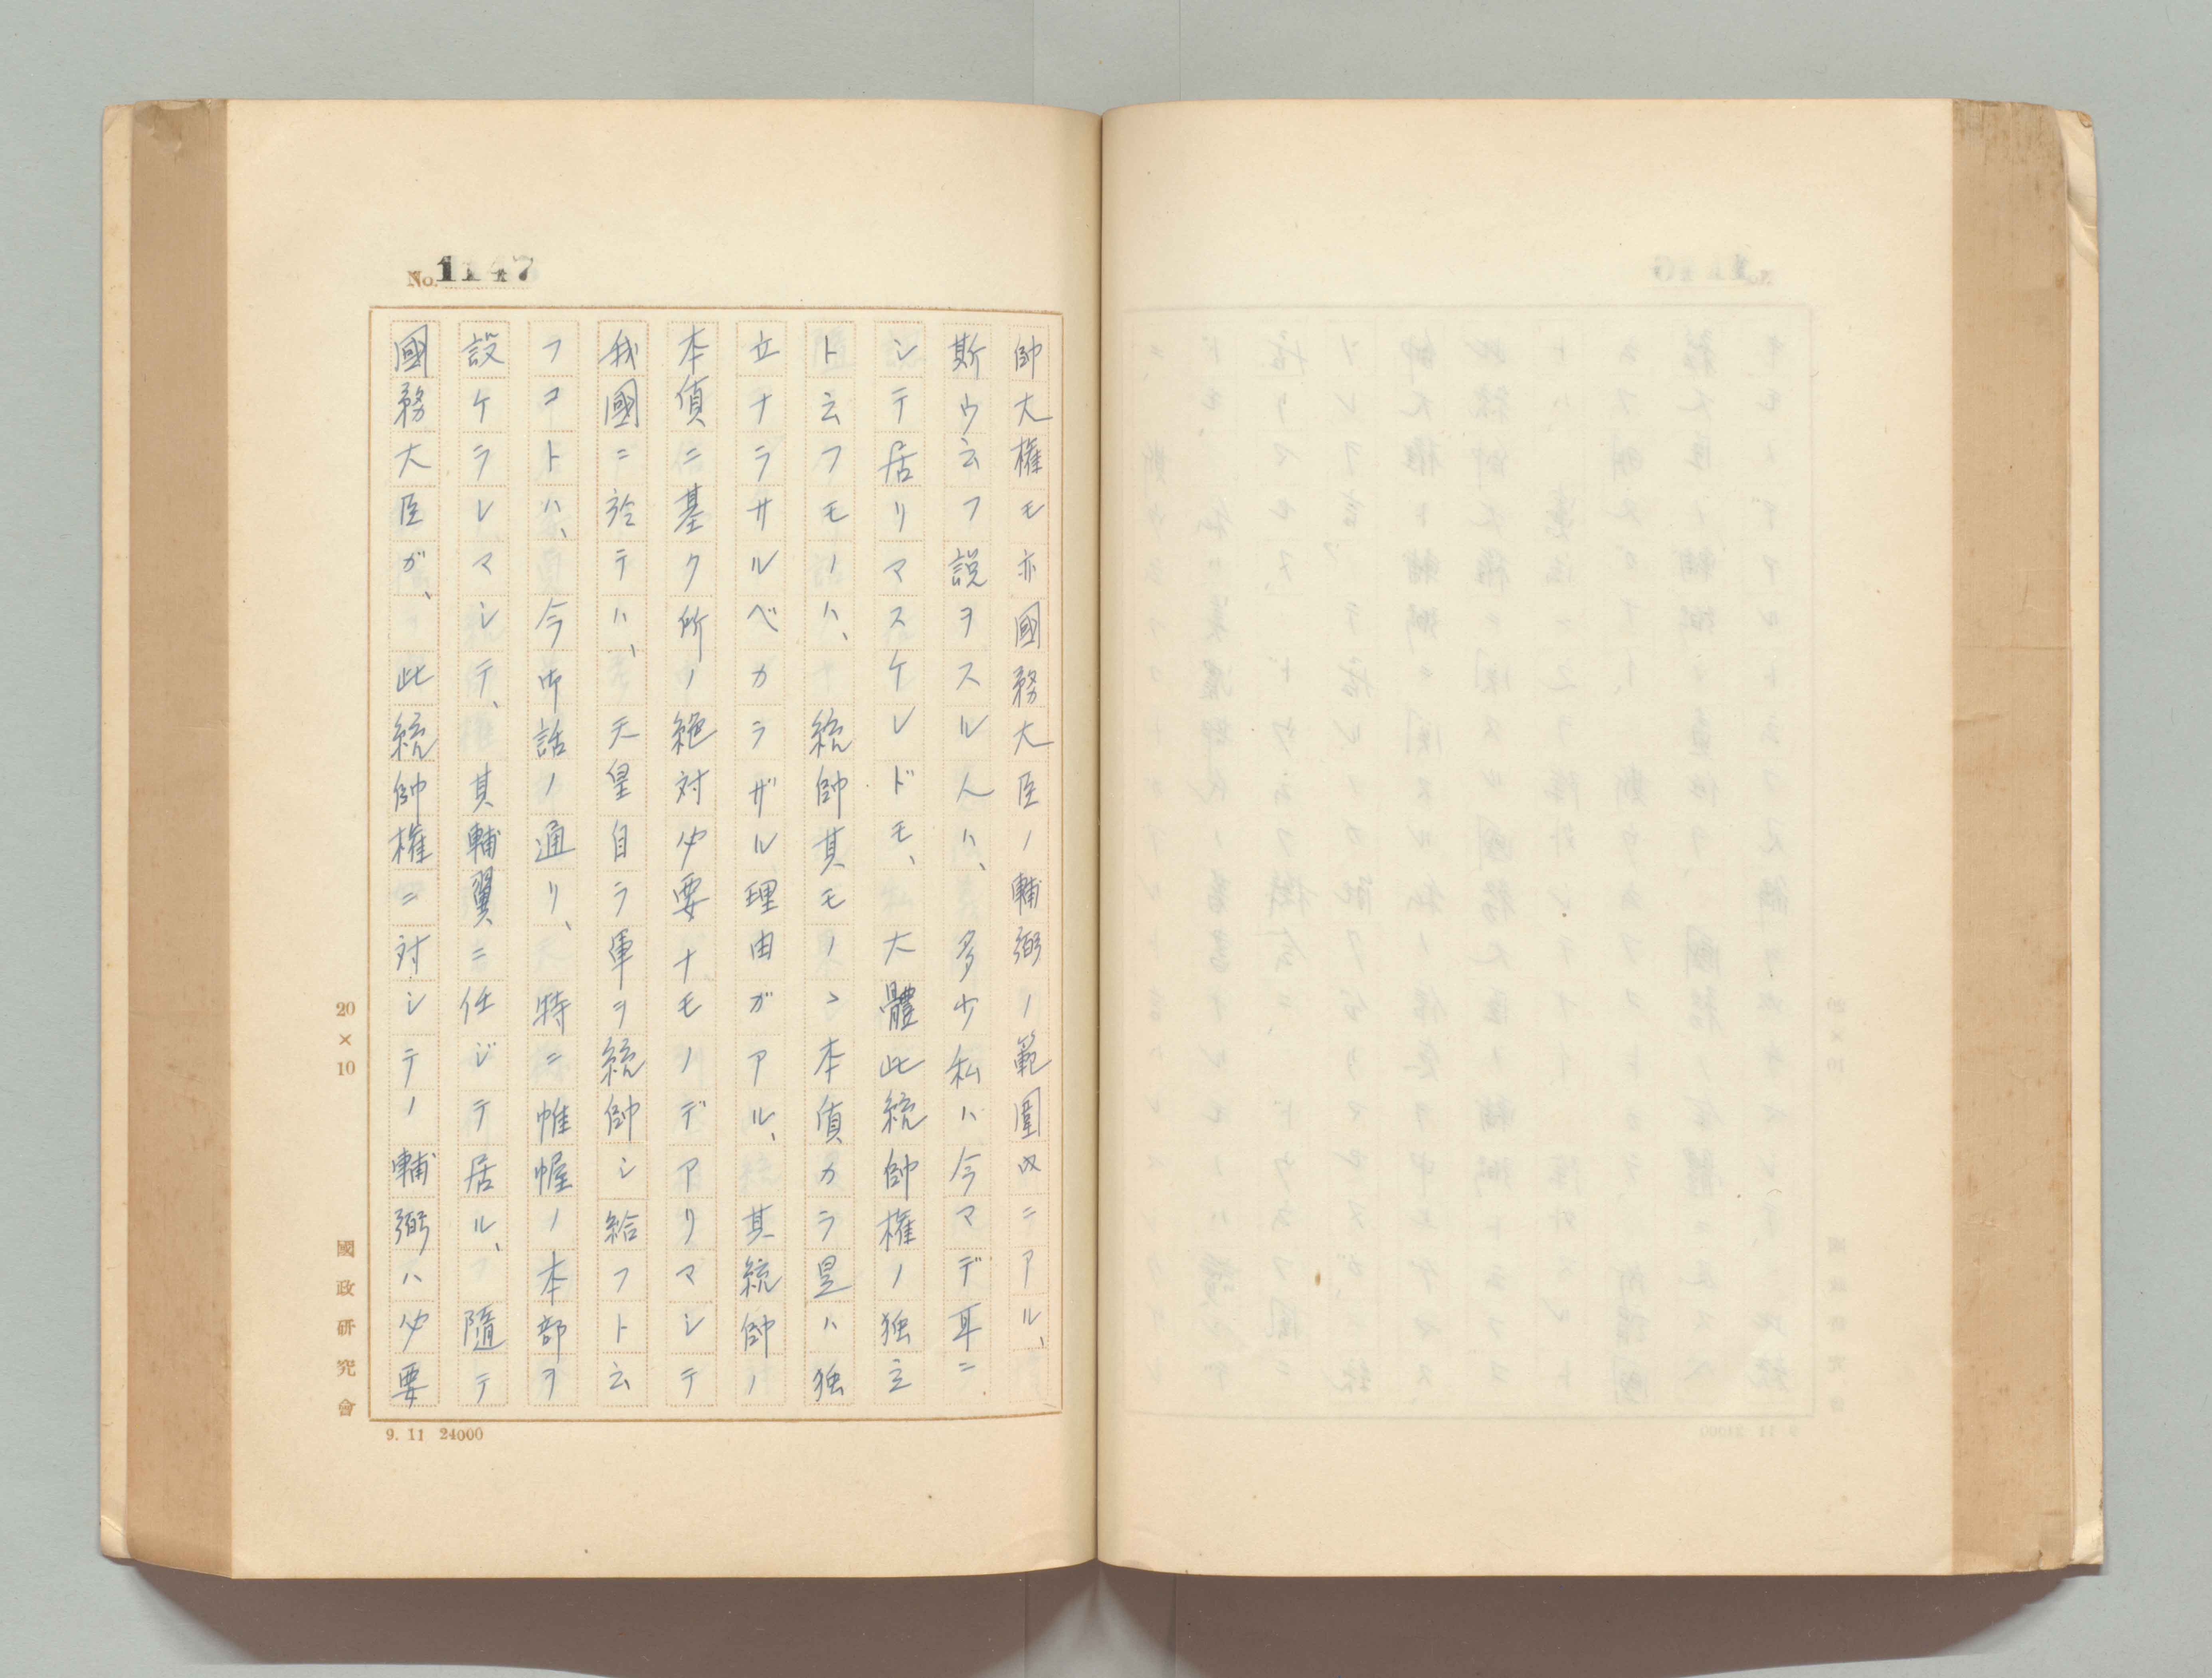 No. 1147
帥大権モ亦國務大臣ノ輔弼ノ範圍内ニアル、
斯ウ云フ説ヲスル人ハ、多少私ハ今マデ耳ニ
シテ居リマスケレドモ、大體此統帥権ノ独立
ト云フモノハ、統帥其モノヽ本質カラ是ハ独
立ナラサルベカラザル理由ガアル、其統帥ノ
本質ニ基ク所ノ絶対必要ナモノデアリマシテ
我國ニ於テハ、天皇自ラ軍ヲ統帥シ給フト云
フコトハ、今御話ノ通リ、特ニ帷幄ノ本部ヲ
設ケラレマシテ、其輔翼ニ任ジテ居ル、隨テ
國務大臣ガ、此統帥権ニ対シテノ輔弼ハ必要
20×10
國政研究會
9. 11 24000